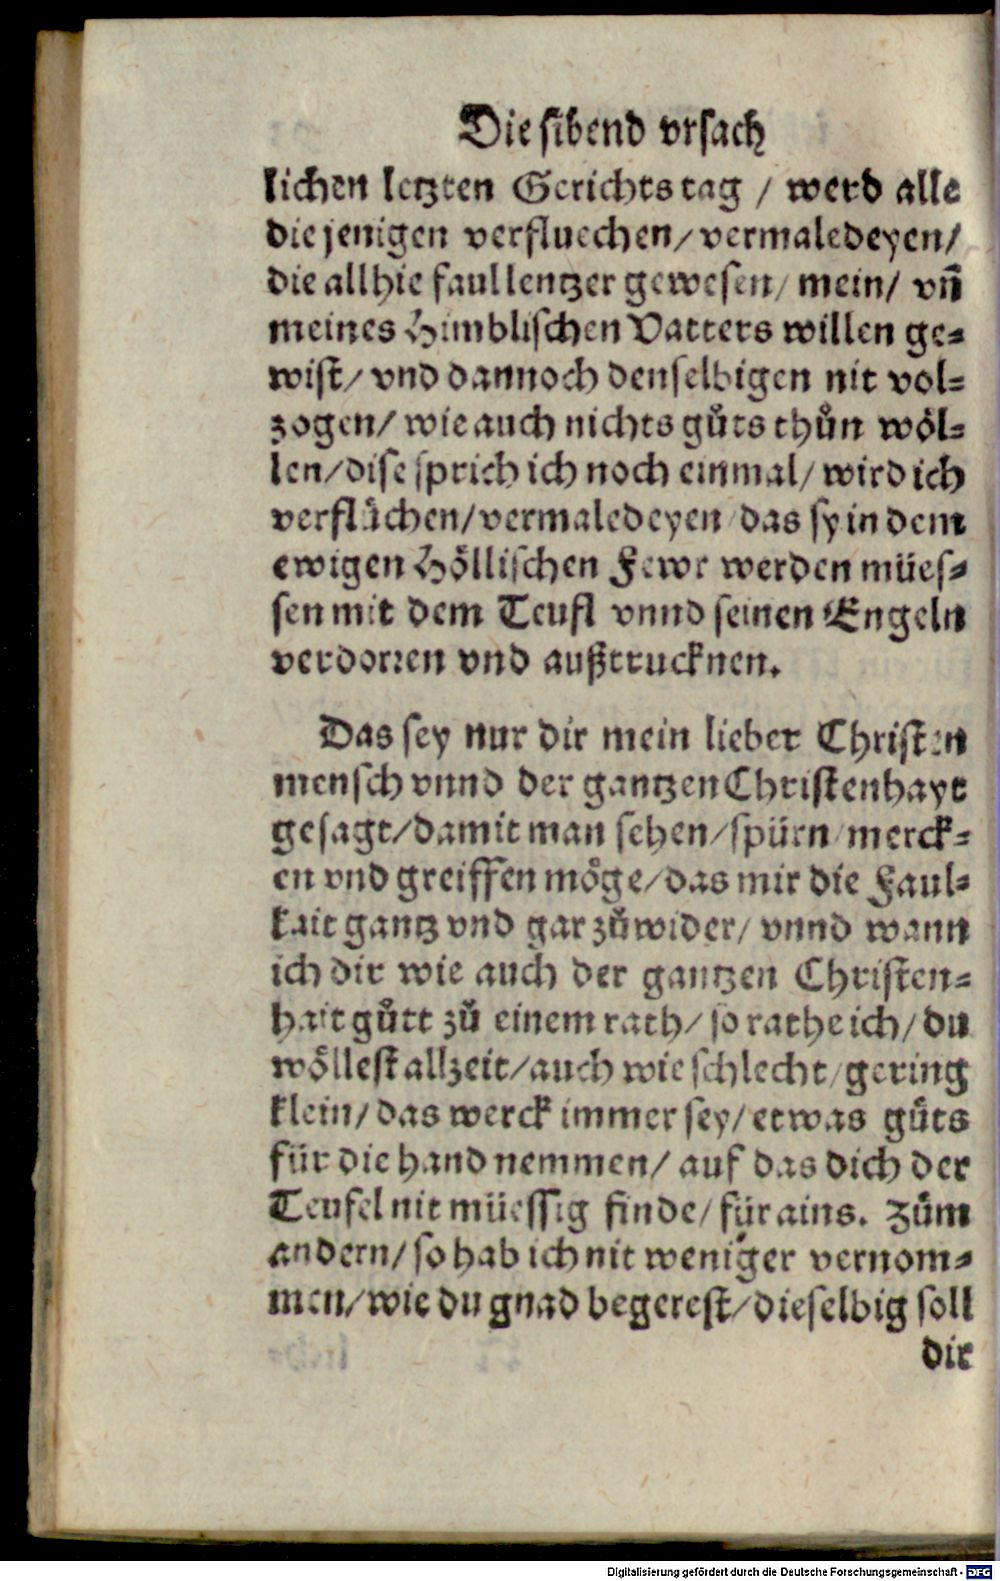 Die sibend vrsach
lichen letzten Gerichts tag / werd alle
die jenigen verfluechen / vermaledeyen /
die allhie faullentzer gewesen / mein / vñ
meines Himblischen Vatters willen ge-
wist / vnd dannoch denselbigen nit vol-
zogen / wie auch nichts gůts thůn wöl-
len / dise sprich ich noch einmal / wird ich
verflůchen / vermaledeyen / das sy in dem
ewigen Höllischen Fewr werden mües-
sen mit dem Teufl vnnd seinen Engeln
verdorren vnd außtrucknen.
Das sey nur dir mein lieber Christen
mensch vnnd der gantzen Christenhayt
gesagt / damit man sehen / spürn / merck-
en vnd greiffen möge / das mir die Faul-
kait gantz vnd gar zůwider / vnnd wann
ich dir wie auch der gantzen Christen-
hait gůtt zů einem rath / so rathe ich / du
wöllest allzeit / auch wie schlecht / gering
klein / das werck immer sey / etwas gůts
für die hand nemmen / auf das dich der
Teufel nit müessig finde / für ains. Zům
andern / so hab ich nit weniger vernom-
men / wie du gnad begerest / dieselbig soll
dir
Digitalisierung gefördert durch die Deutsche Forschungsgemeinschaft - DFG